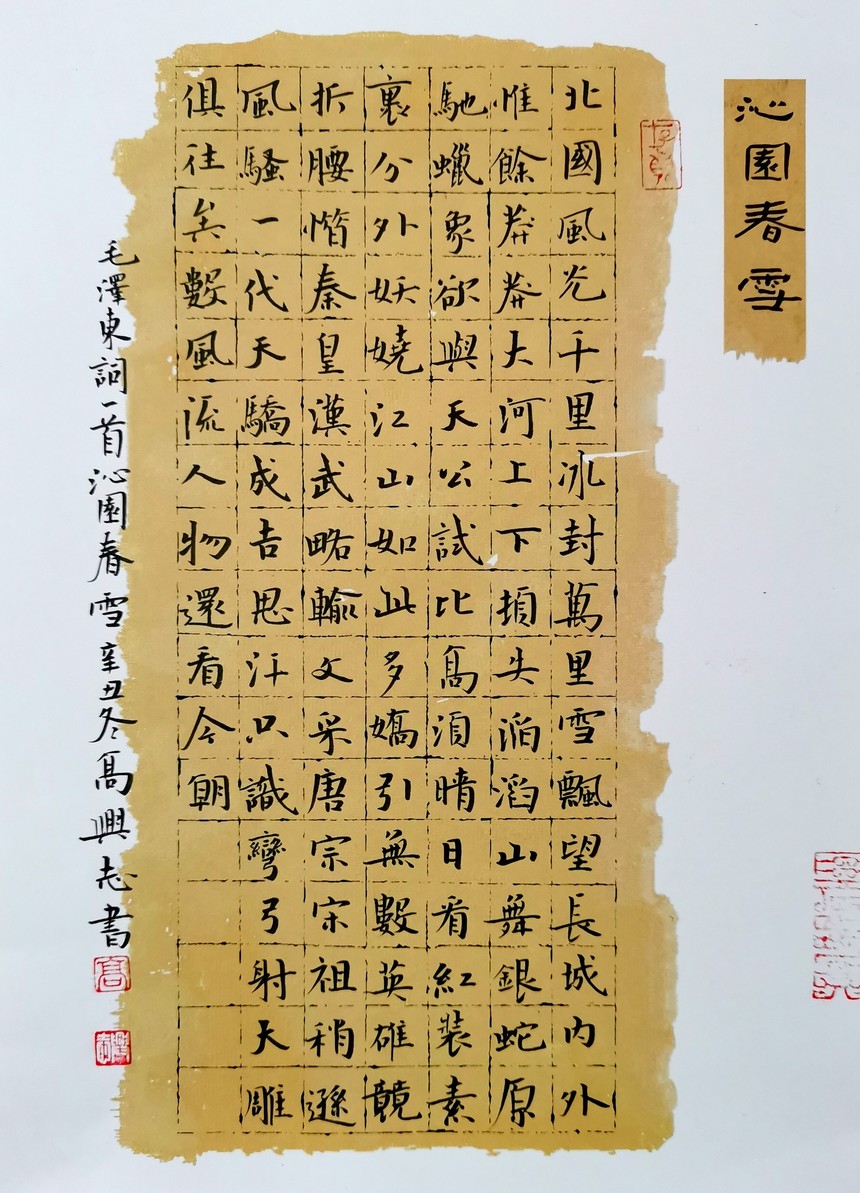 沁園春雪
北國風光千里冰封萬里雪飄望長城内外
惟餘莽莽大河上下頓失滔滔山舞銀蛇原
馳蠟象欲與天公試比高須晴日看紅裝素
裹分外妖嬈江山如此多嬌引無數英雄競
折腰惜秦皇漢武略輸文采唐宗宋祖稍遜
風騷一代天驕成吉思汗只識彎弓射大雕
俱往矣數風流人物還看今朝
毛澤東詞一首沁園春雪辛丑冬高興志書
高